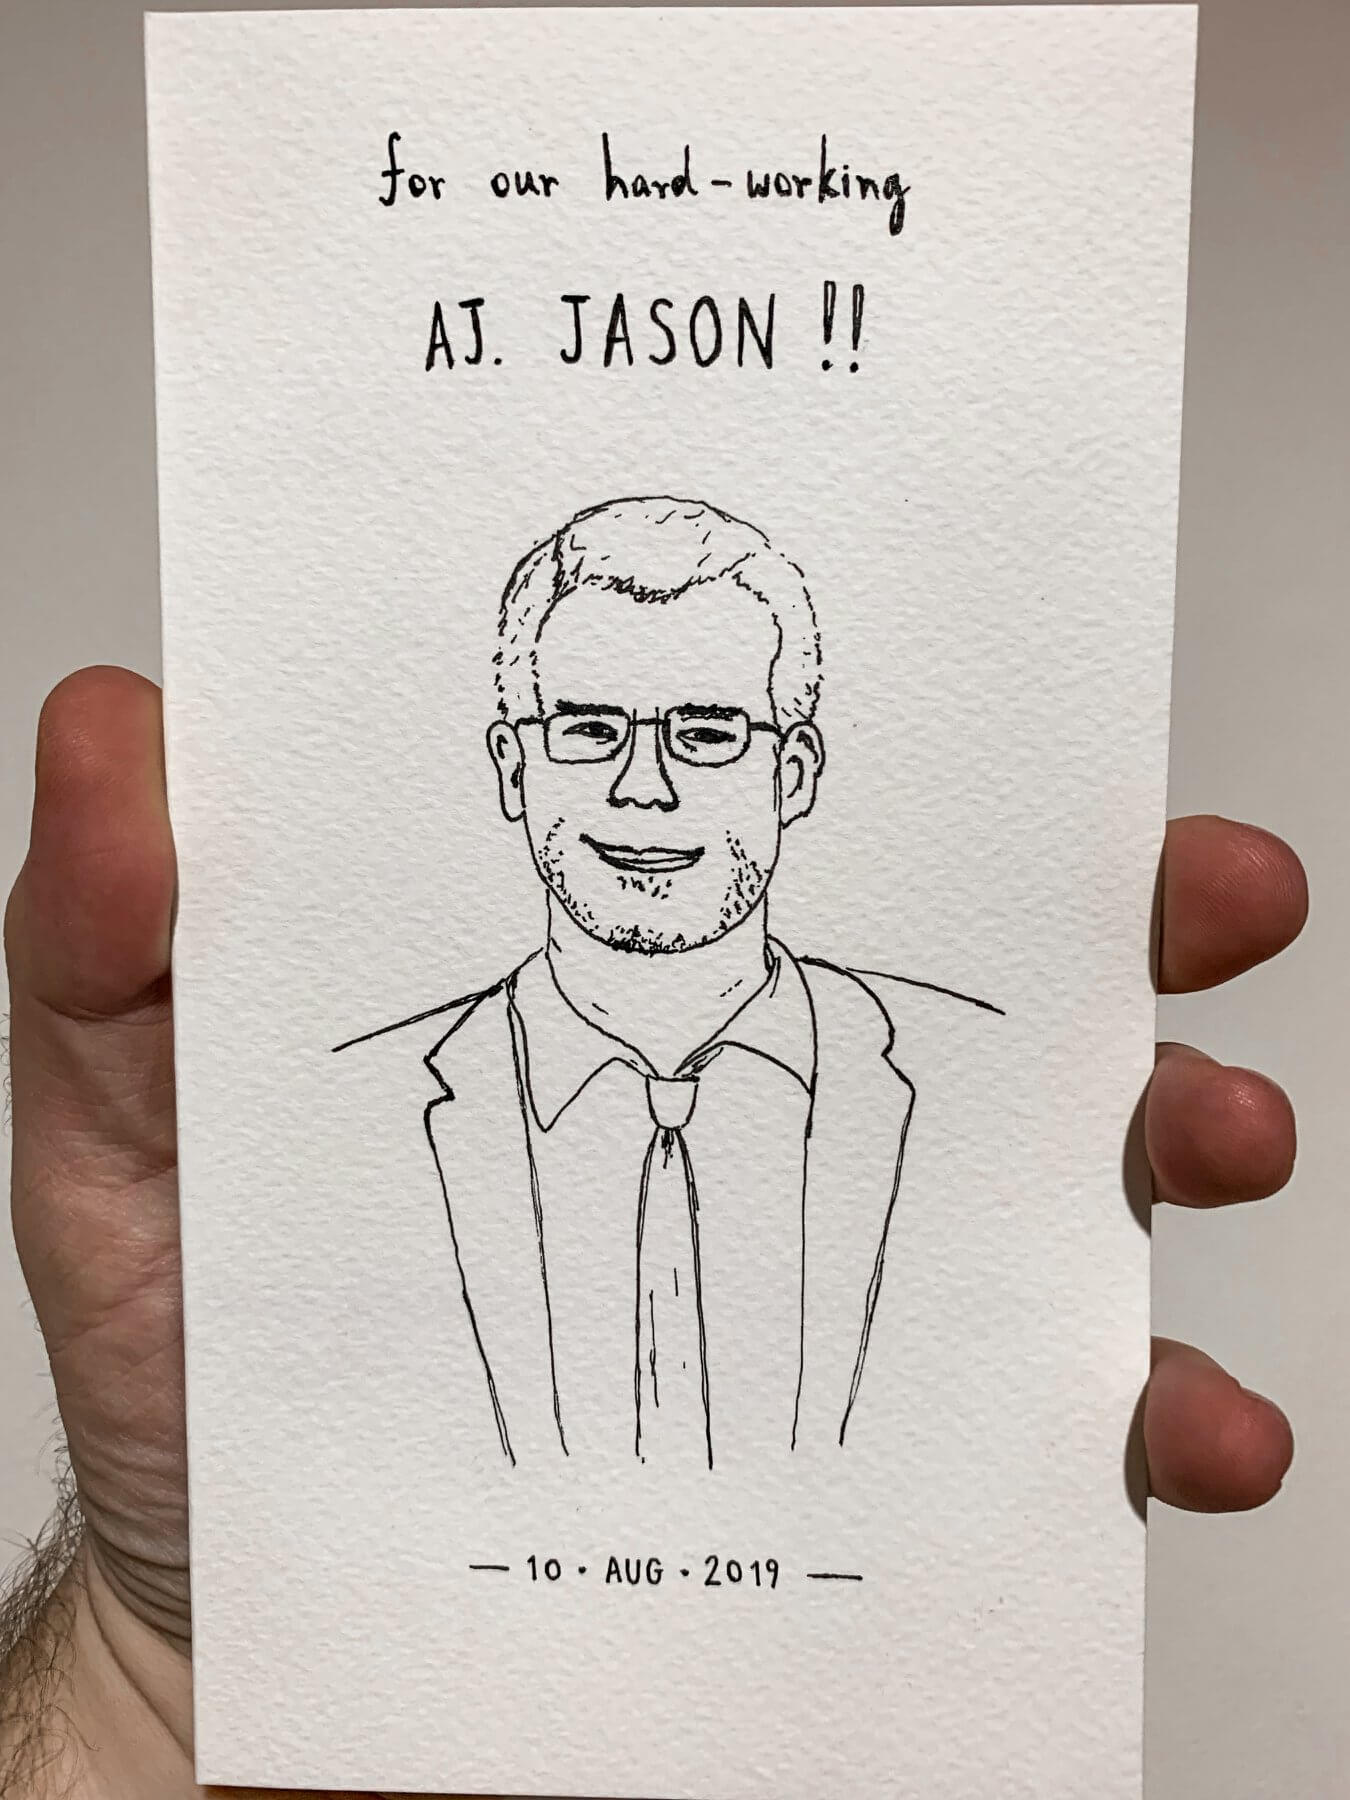 for our hard-working
AJ. JASON !!
— 10 · AUG · 2019 —